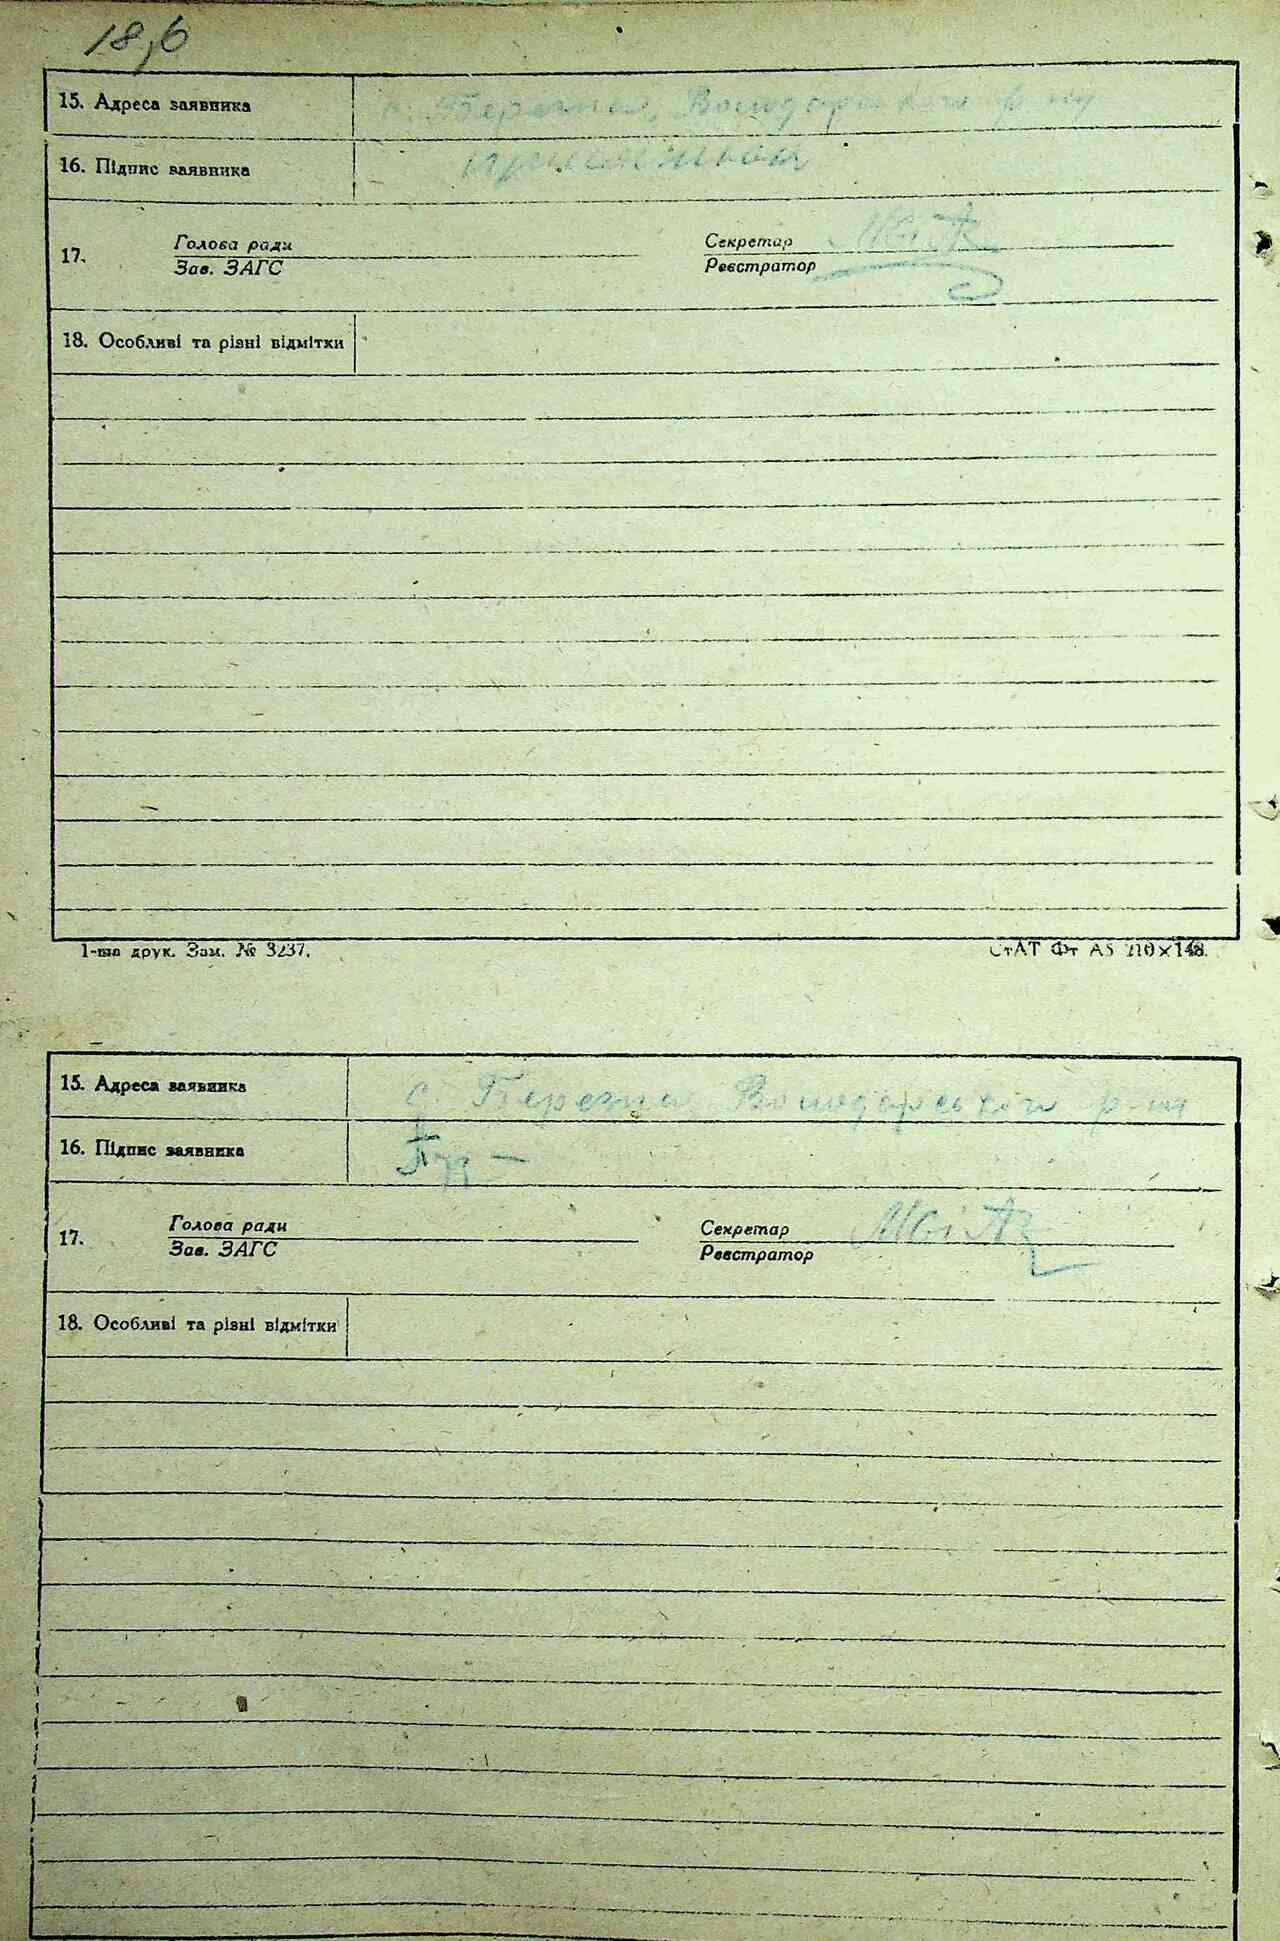 18,6
15. Адреса заявника с. Березна, Володарського р-ну
16. Підпис заявника
17. Голова ради Секретар
Зав. ЗАГС Реєстратор
18. Особливі та різні відмітки
1-ша друк. Зам. № 3237. СтАТ Фт А5 210×148.
15. Адреса заявника с. Березна Володарського р-ну
16. Підпис заявника
17. Голова ради Секретар
Зав. ЗАГС Реєстратор
18. Особливі та різні відмітки